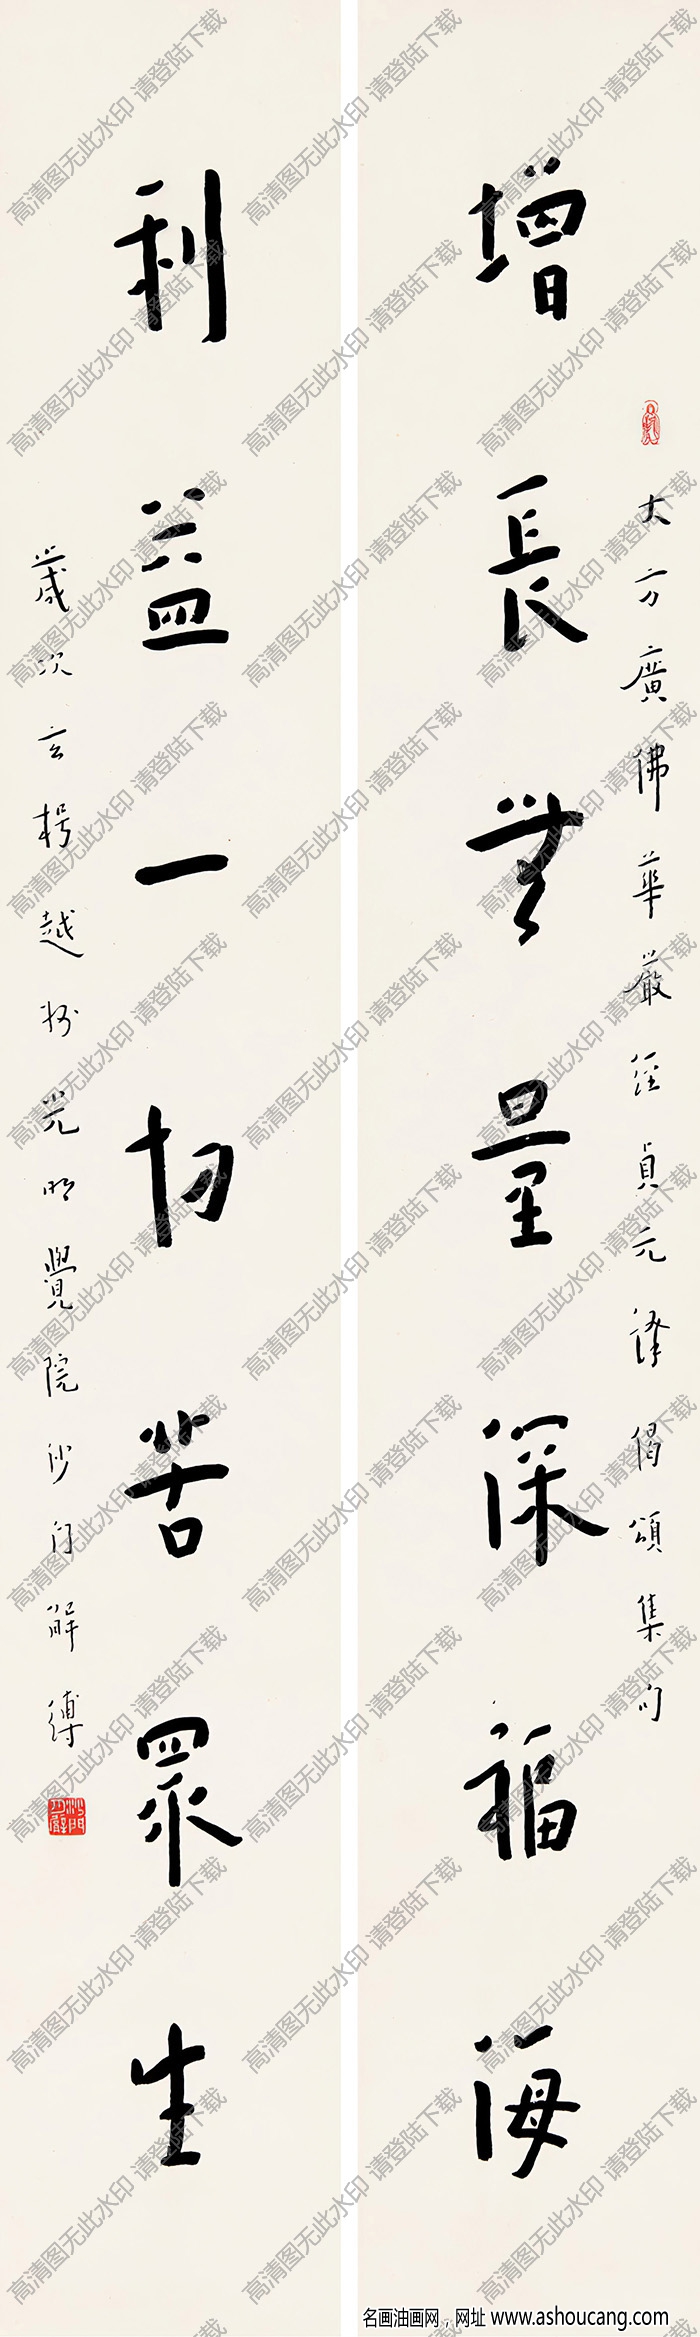 增長無量深福海
大方廣佛華嚴經貞元譯偈頌集句
利益一切苦眾生
歲次玄枵越州光明覺院沙門解縛
沙門
名画油画网，网址 www.ashoucang.com
高清图无此水印 请登陆下载